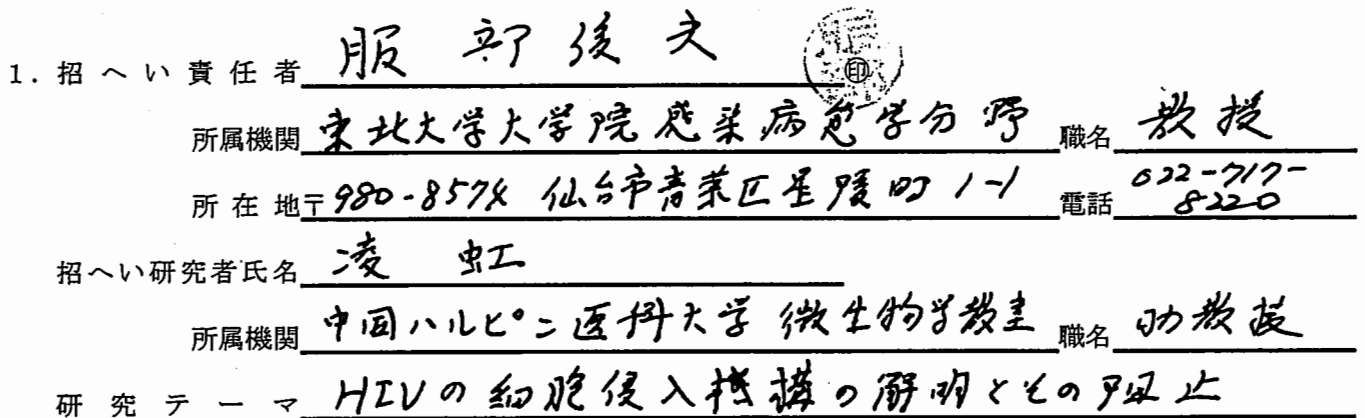 1. 招へい責任者 服部俊夫 ㊞
所属機関 東北大学大学院感染病態学分野 職名 教授
所在地〒980-8574 仙台市青葉区星陵町1-1 電話 022-717-8220
招へい研究者氏名 凌 虹
所属機関 中国ハルピン医科大学 微生物学教室 職名 助教授
研究テーマ HIVの細胞侵入機構の解明とその阻止